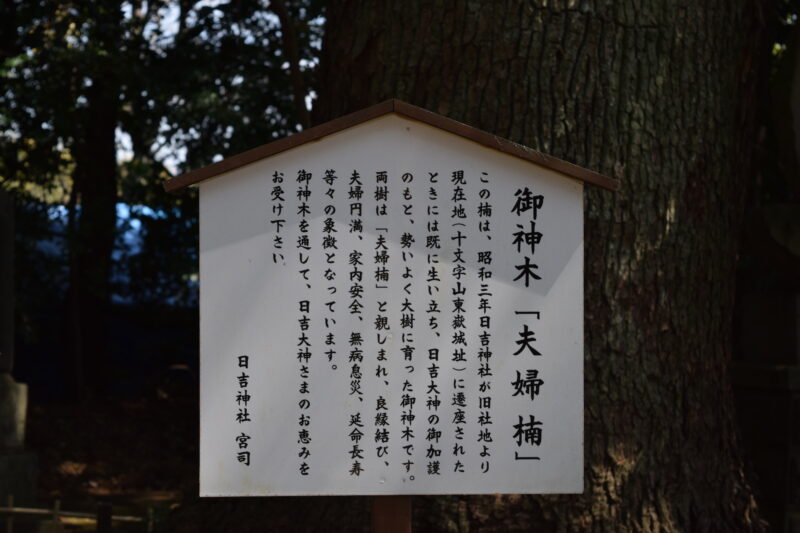 御神木「夫婦楠」
この楠は、昭和三年日吉神社が旧社地より
現在地(十文字山東嶽城址)に遷座された
ときには既に生い立ち、日吉大神の御加護
のもと、勢いよく大樹に育った御神木です。
両樹は「夫婦楠」と親しまれ、良縁結び、
夫婦円満、家内安全、無病息災、延命長寿
等々の象徴となっています。
御神木を通して、日吉大神さまのお恵みを
お受け下さい。
日吉神社 宮司